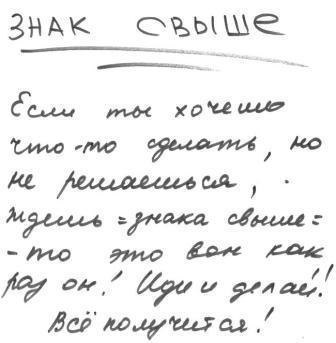 ЗНАК СВЫШЕ
Если ты хочешь
что-то сделать, но
не решаешься,
ждешь = знака свыше =
- то это вон как
раз он! Иди и делай!
Всё получится!